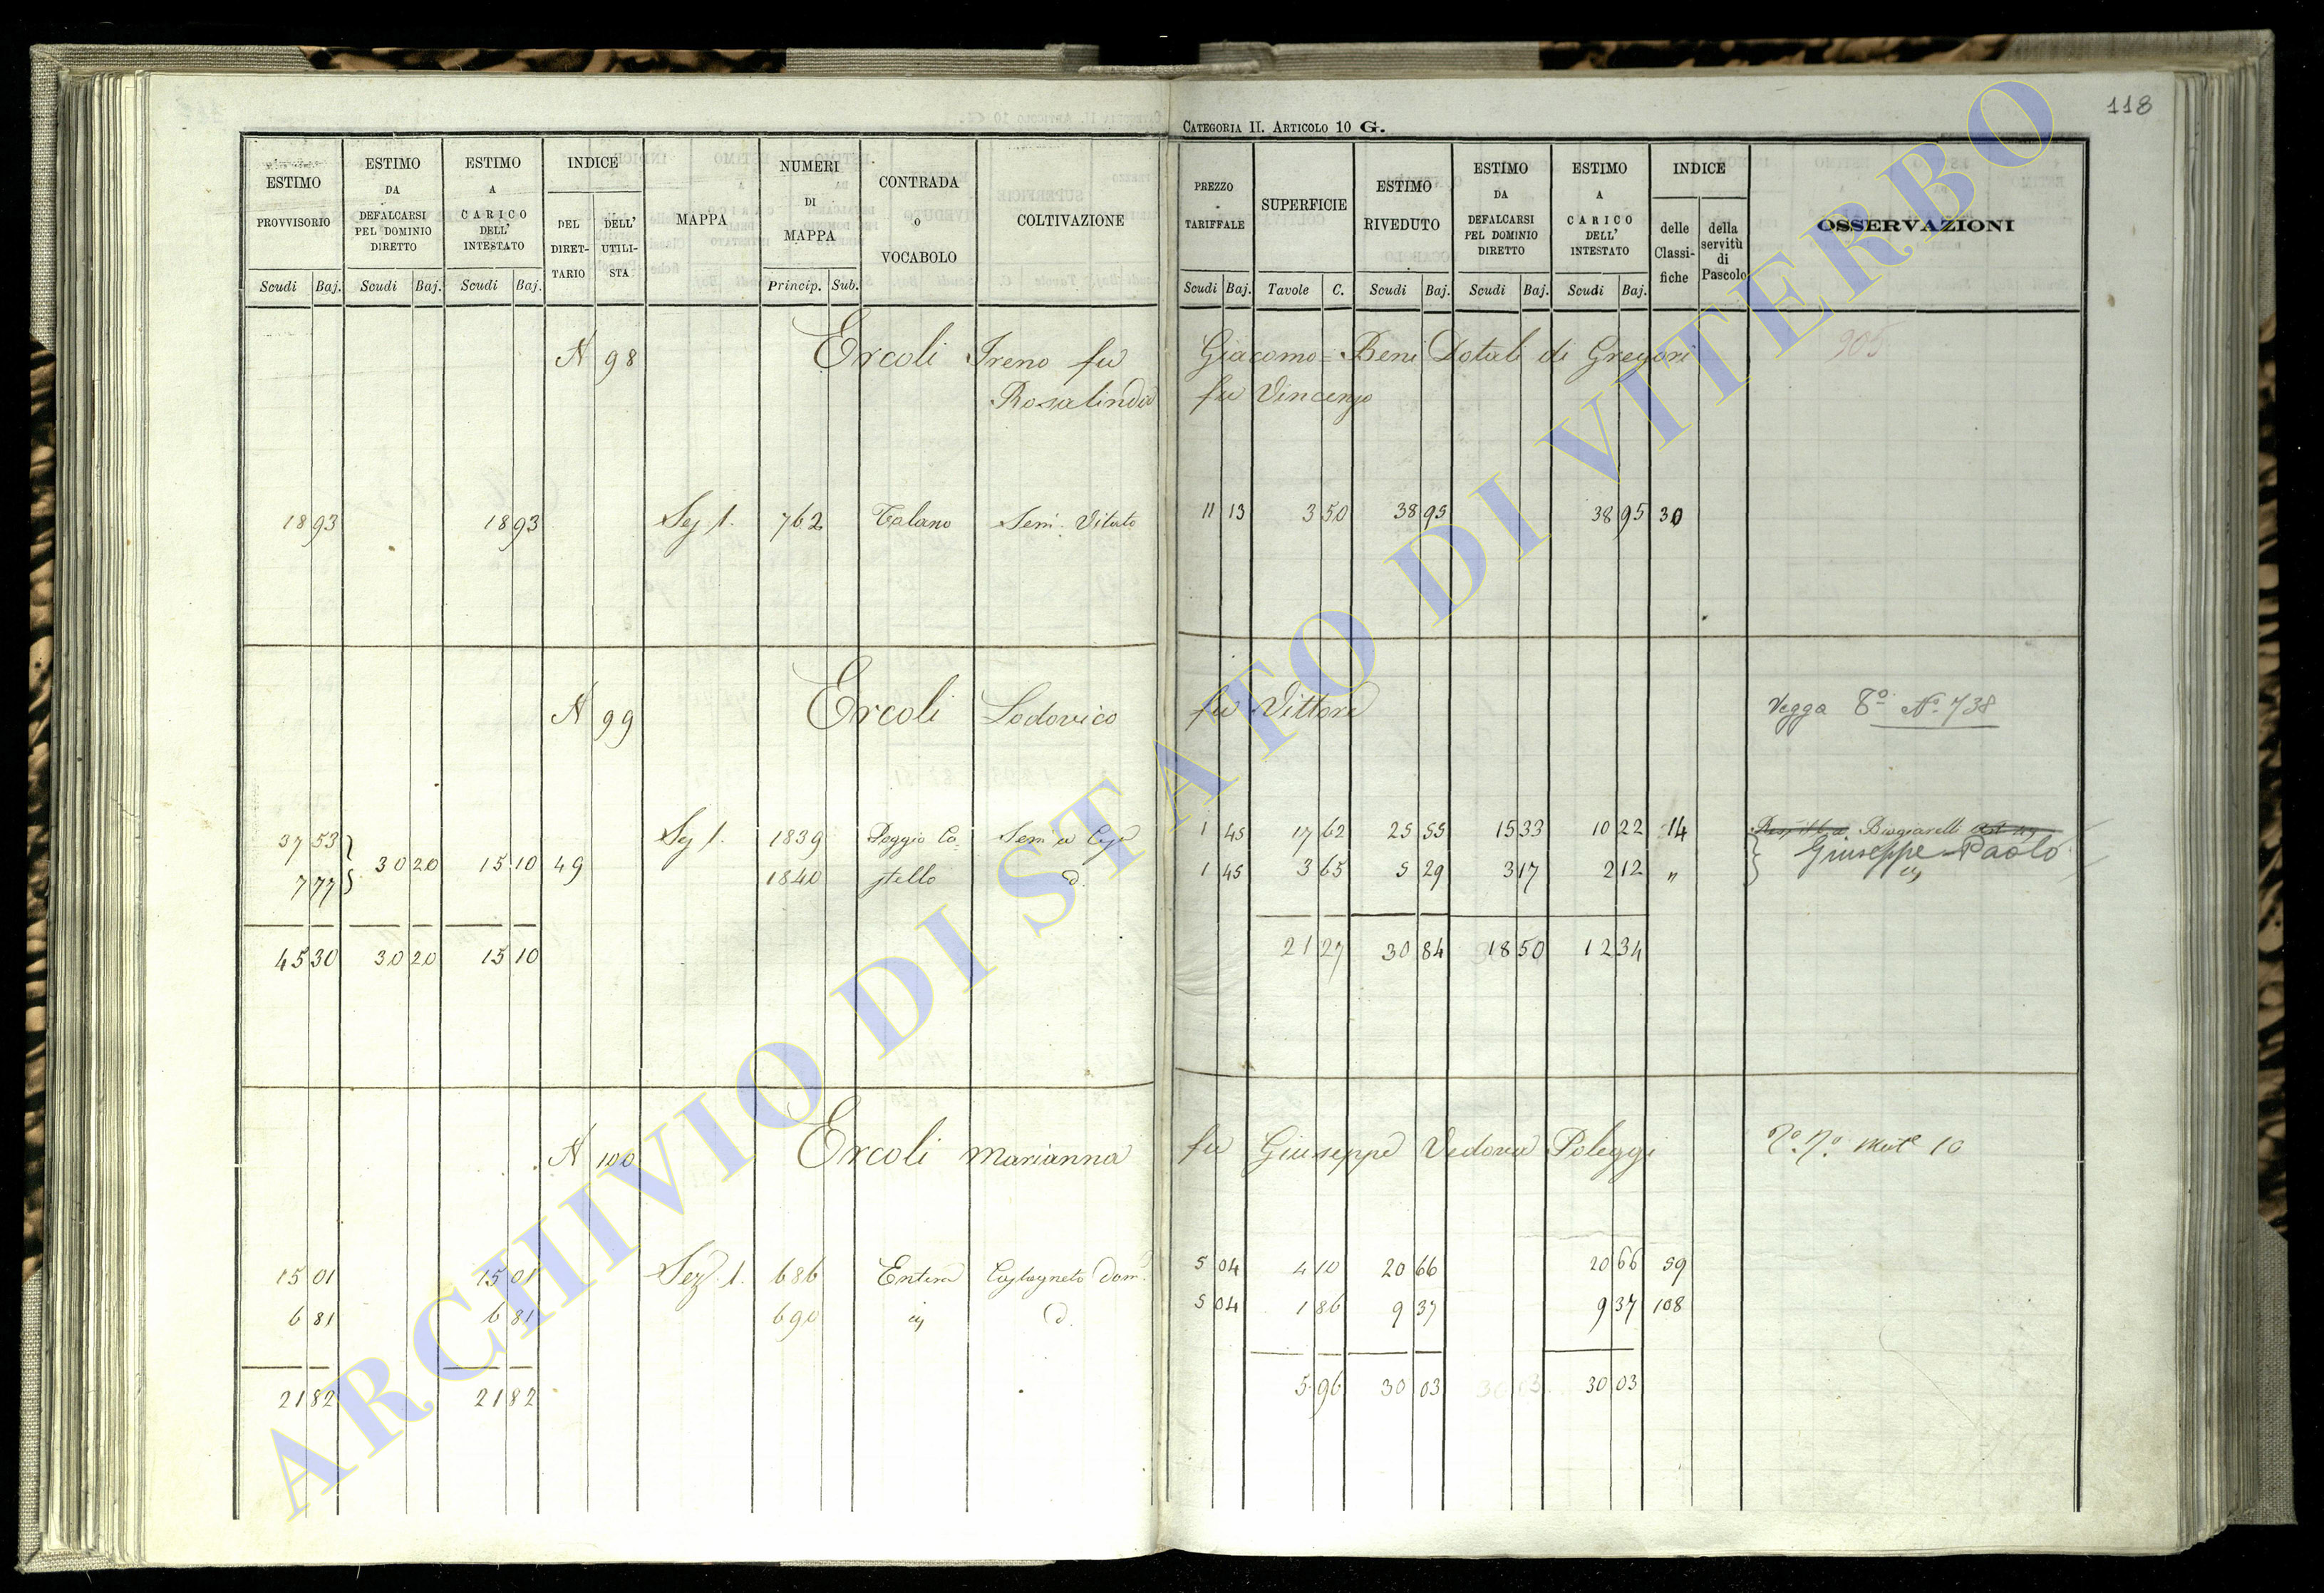 118
CATEGORIA II. ARTICOLO 10 G.
ESTIMO PROVVISORIO Scudi Baj.
ESTIMO DA DEFALCARSI PEL DOMINIO DIRETTO Scudi Baj.
ESTIMO A CARICO DELL' INTESTATO Scudi Baj.
INDICE DEL DIRETTARIO DELL' UTILISTA
MAPPA
NUMERI DI MAPPA Princip. Sub.
CONTRADA o VOCABOLO
COLTIVAZIONE
PREZZO TARIFFALE Scudi Baj.
SUPERFICIE Tavole C.
ESTIMO RIVEDUTO Scudi Baj.
ESTIMO DA DEFALCARSI PEL DOMINIO DIRETTO Scudi Baj.
ESTIMO A CARICO DELL' INTESTATO Scudi Baj.
INDICE delle Classifiche della servitù di Pascolo
OSSERVAZIONI
N 98 Ercoli Ireno fu Giacomo = Beni Dotali di Gregori 905
Rosalinda fu Vincenzo
18 93 18 93 Sez 1. 762 Talano Sem. Vitato 11 13 3 50 38 95 38 95 30
N 99 Ercoli Lodovico fu Vittore Vegga 8° N° 738
37 53 Sez 1. 1839 Poggio Ca- 1 45 17 62 25 55 15 33 10 22 14 Biagiarelli
7 77 30 20 15 10 49 1840 stello d. 1 45 3 65 5 29 3 17 2 12 " Giuseppe Paolo
45 30 30 20 15 10 21 27 30 84 18 50 12 34
N 100 Ercoli Marianna fu Giuseppe Vedova Poleggi 10
15 01 15 01 Sez. 1. 686 Castagneto Dom. 5 04 4 10 20 66 20 66 59
6 81 6 81 690 d. 5 04 1 86 9 37 9 37 108
21 82 21 82 5 96 30 03 30 03
ARCHIVIO DI STATO DI VITERBO